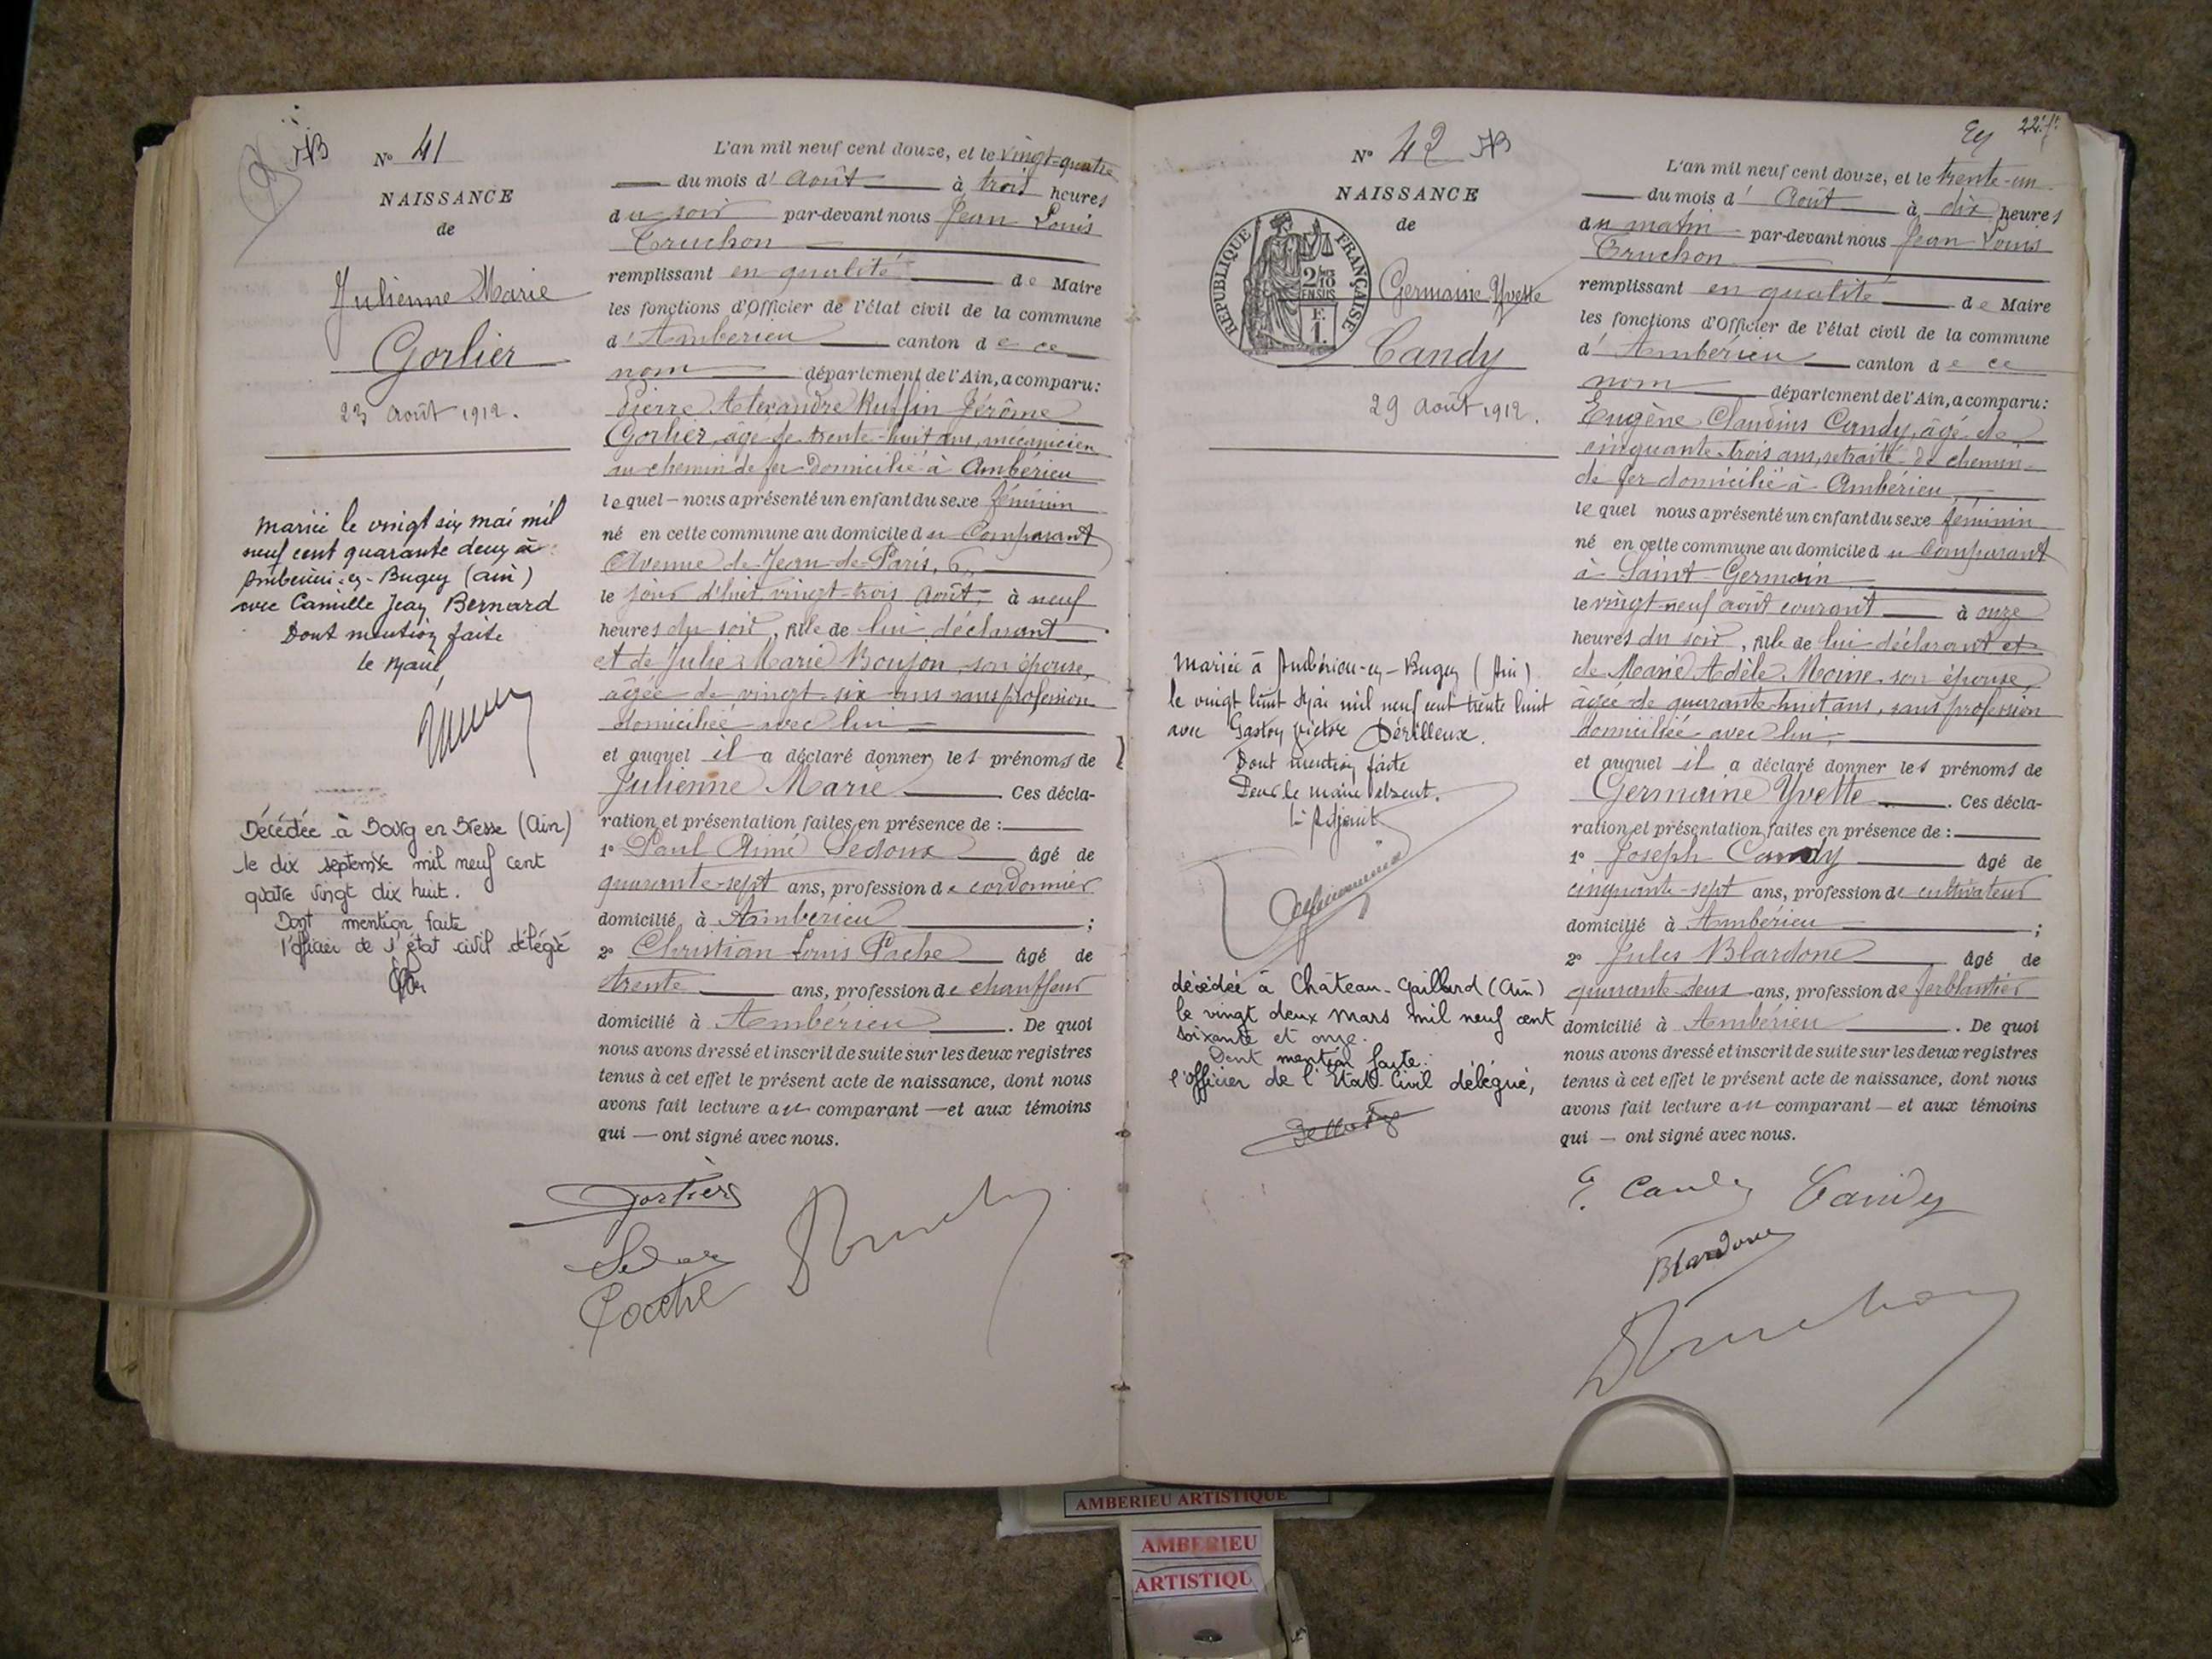 N° 41
NAISSANCE
de
Julienne Marie
Gorlier
23 août 1912.
Mariée le vingt six mai mil
neuf cent quarante deux à
Ambérieu-en-Bugey (Ain)
avec Camille Jean Bernard
Dont mention faite
le Maire
Décédée à Bourg en Bresse (Ain)
le dix septembre mil neuf cent
quatre vingt dix huit.
Dont mention faite
l'officier de l'état civil délégué
L'an mil neuf cent douze, et le vingt-quatre
du mois d'Août à trois heures
du soir par-devant nous Jean Louis
Truchon
remplissant en qualité de Maire
les fonctions d'Officier de l'état civil de la commune
d'Ambérieu canton de ce
nom département de l'Ain, a comparu:
Pierre Alexandre Ruffin Jérôme
Gorlier, âgé de trente-huit ans, mécanicien
au chemin de fer domicilié à Ambérieu
lequel - nous a présenté un enfant du sexe féminin
né en cette commune au domicile du Comparant
Avenue de Jean-de-Paris, 6,
le jour d'hier vingt-trois Août, à neuf
heures du soir, fille de lui déclarant
et de Julie Marie Boujon, son épouse,
âgée de vingt-six ans sans profession
domiciliée avec lui
et auquel il a déclaré donner les prénoms de
Julienne Marie. Ces décla-
ration et présentation faites en présence de :
1° Paul Aimé Sedoux âgé de
quarante-sept ans, profession de cordonnier
domicilié à Ambérieu ;
2° Christian Louis Pache âgé de
trente ans, profession de chauffeur
domicilié à Ambérieu. De quoi
nous avons dressé et inscrit de suite sur les deux registres
tenus à cet effet le présent acte de naissance, dont nous
avons fait lecture au comparant — et aux témoins
qui — ont signé avec nous.
Gorlier
Pache
22 f.
N° 42
NAISSANCE
de
REPUBLIQUE FRANÇAISE
2/10
EN SUS
F.
1.
Germaine Yvette
Candy
29 août 1912.
Mariée à Ambérieu-en-Bugey (Ain)
le vingt huit Mai mil neuf cent trente huit
avec Gaston Victor Dérilleux.
Dont mention faite
Pour le maire absent.
L'Adjoint
décédée à Château-Gaillard (Ain)
le vingt deux mars mil neuf cent
soixante et onze.
Dont mention faite.
l'officier de l'Etat-Civil délégué,
L'an mil neuf cent douze, et le trente-un
du mois d'Août à dix heures
du matin par-devant nous Jean Louis
Truchon
remplissant en qualité de Maire
les fonctions d'Officier de l'état civil de la commune
d'Ambérieu canton de ce
nom département de l'Ain, a comparu:
Eugène Claudius Candy, âgé de
cinquante-trois ans, retraité de chemin
de fer domicilié à Ambérieu,
lequel nous a présenté un enfant du sexe féminin
né en cette commune au domicile du Comparant
à Saint-Germain
le vingt-neuf août courant à onze
heures du soir, fille de lui déclarant et
de Marie Adèle Moine son épouse
âgée de quarante-huit ans, sans profession
domiciliée avec lui,
et auquel il a déclaré donner les prénoms de
Germaine Yvette. Ces décla-
ration et présentation faites en présence de :
1° Joseph Candy âgé de
cinquante-sept ans, profession de cultivateur
domicilié à Ambérieu ;
2° Jules Blardone âgé de
quarante-deux ans, profession de ferblantier
domicilié à Ambérieu. De quoi
nous avons dressé et inscrit de suite sur les deux registres
tenus à cet effet le présent acte de naissance, dont nous
avons fait lecture au comparant — et aux témoins
qui — ont signé avec nous.
E. Candy Candy
Blardone
Truchon
AMBERIEU ARTISTIQUE
AMBERIEU
ARTISTIQU